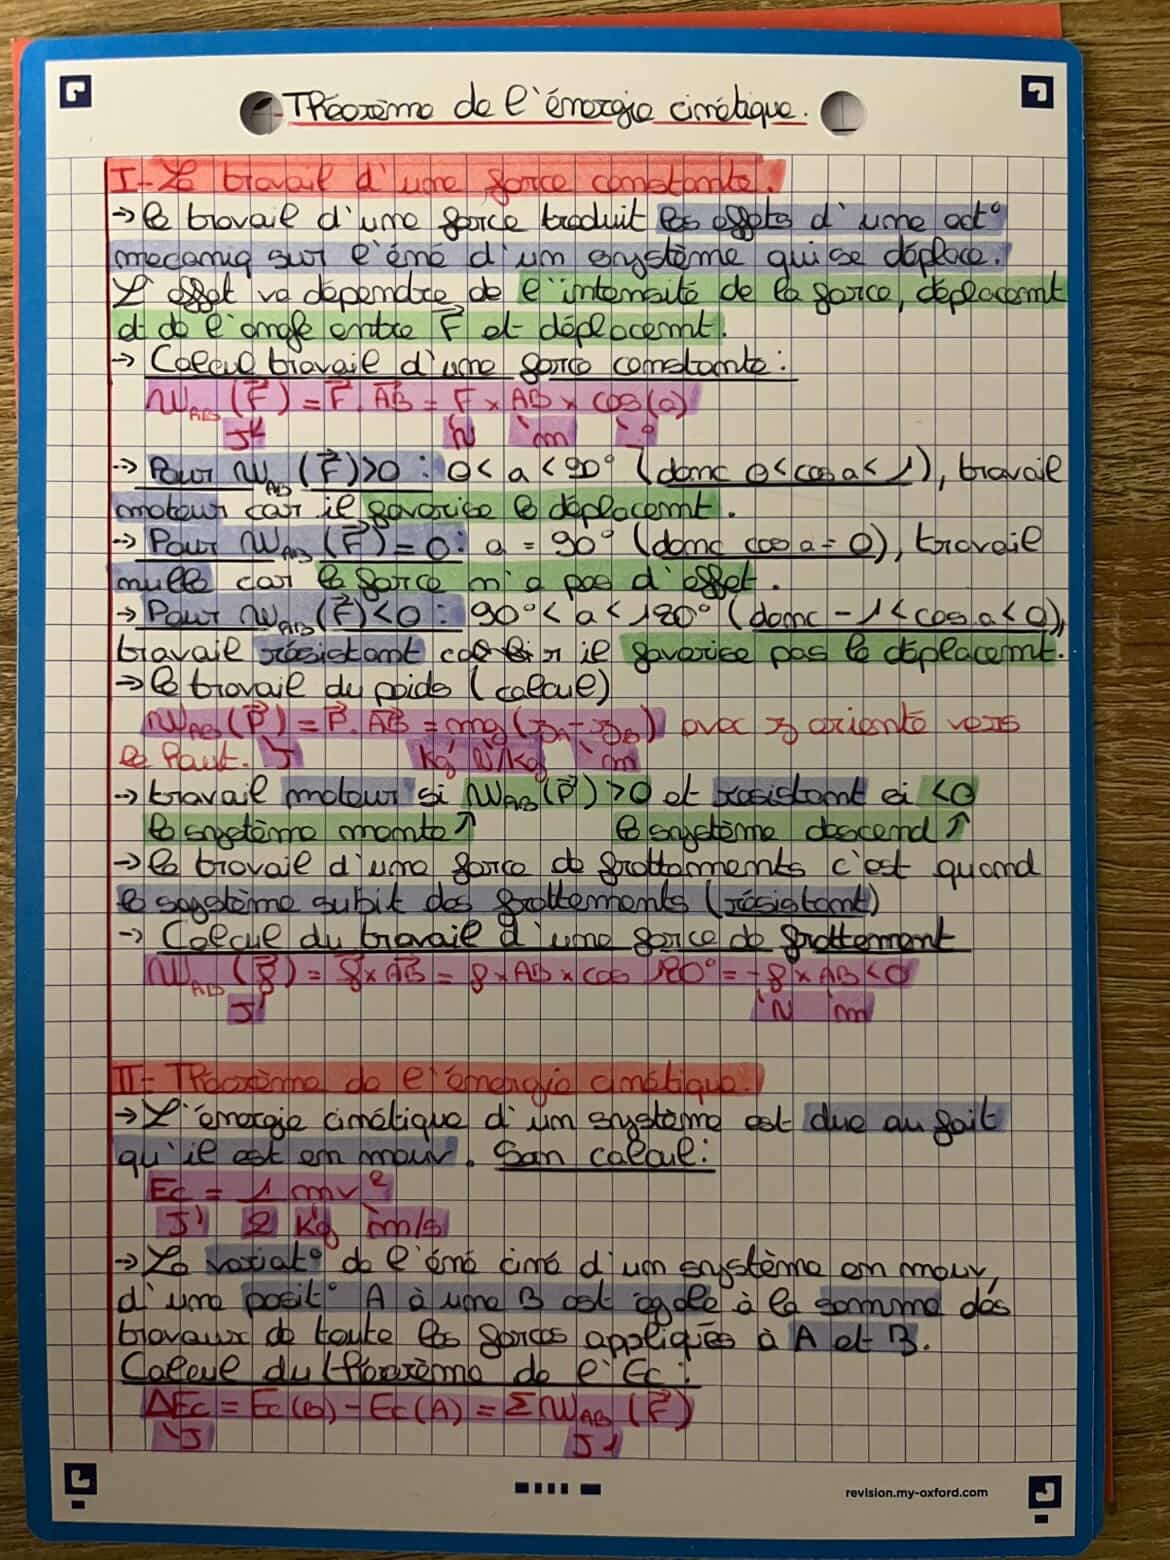 Théorème de l'énergie cinétique.
I- Le travail d'une force constante.
→ le travail d'une force traduit les effets d'une act°
mecaniq sur l'éné d'un système qui se déplace.
L'effet va dépendre de l'intensité de la force, déplacemt
et de l'angle entre F⃗ et déplacemt.
→ Calcul travail d'une force constante :
W_AB (F⃗) = F⃗. AB⃗ = F × AB × cos(a)
J N m °
→ Pour W_AB (F⃗)>0 : 0< a <90° (donc 0<cos a< 1), travail
moteur car il favorise le déplacemt.
→ Pour W_AB (F⃗)=0: a = 90° (donc cos a = 0), travail
nulle car la force n'a pas d'effet.
→ Pour W_AB (F⃗)<0 : 90°< a < 180° (donc -1<cos a<0),
travail résistant car il favorise pas le déplacemt.
→ le travail du poids (calcul)
W_AB (P⃗) = P⃗. AB⃗ = mg (zA - zB) avec z orienté vers
le haut. J kg N/kg m
→ travail moteur si W_AB (P⃗) >0 et résistant si <0
le système monte ↑ le système descend ↑
→ le travail d'une force de frottements c'est quand
le système subit des frottements (résistant)
→ Calcul du travail d'une force de frottement
W_AB (f⃗) = f⃗× AB⃗ = f × AB × cos 180° = -f × AB <0
J N m
II- Théorème de l'énergie cinétique.
→ L'énergie cinétique d'un système est due au fait
qu'il est en mouv. Son calcul :
Ec = 1/2 mv²
J kg m/s
→ La variat° de l'éné ciné d'un système en mouv,
d'une posit° A à une B est égale à la somme des
travaux de toute les forces appliqués à A et B.
Calcul du théorème de l'Ec :
ΔEc = Ec (B) - Ec (A) = Σ W_AB (F⃗)
J J
revision.my-oxford.com